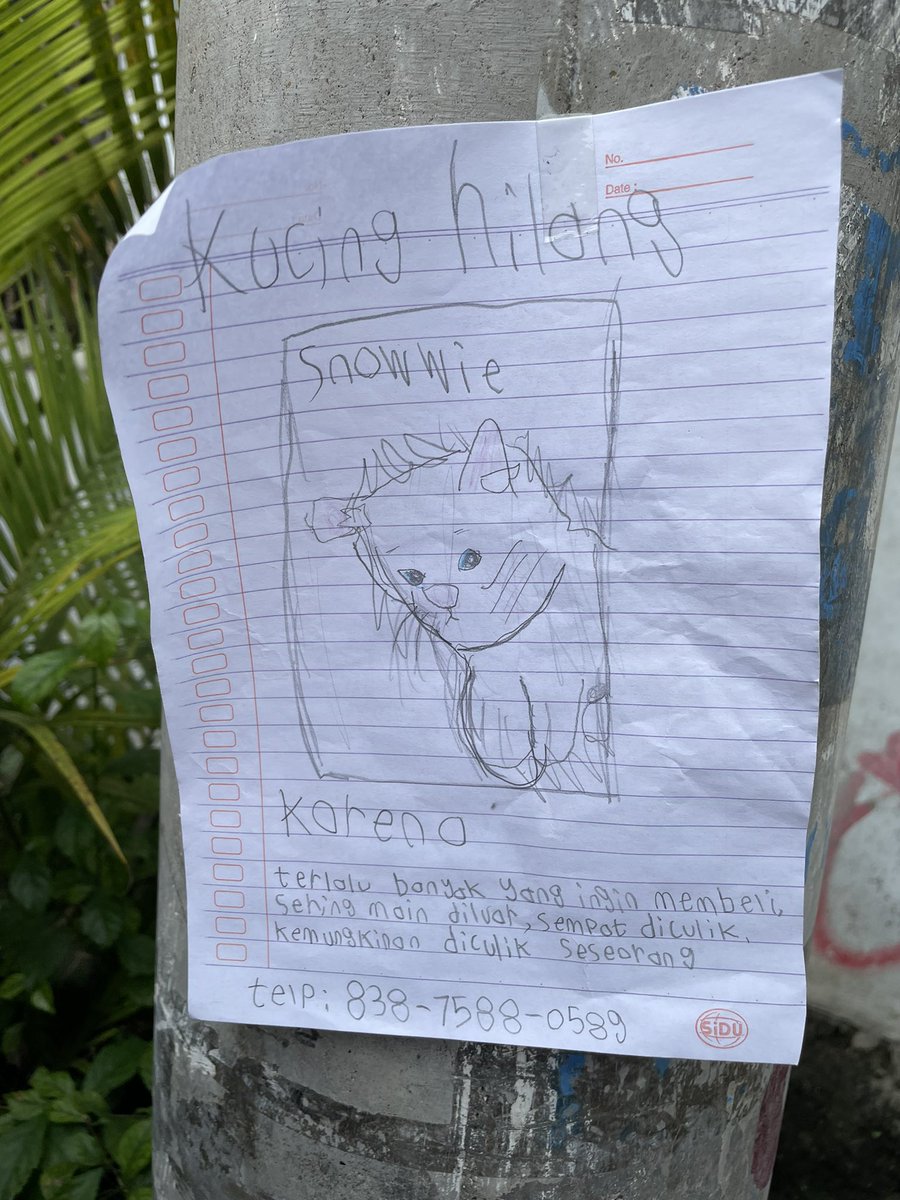 No.
Date:
Kucing hilang
Snowwie
Karena
terlalu banyak yang ingin membeli,
sering main diluar, sempat diculik,
kemungkinan diculik seseorang
telp: 838-7588-0589
SiDU